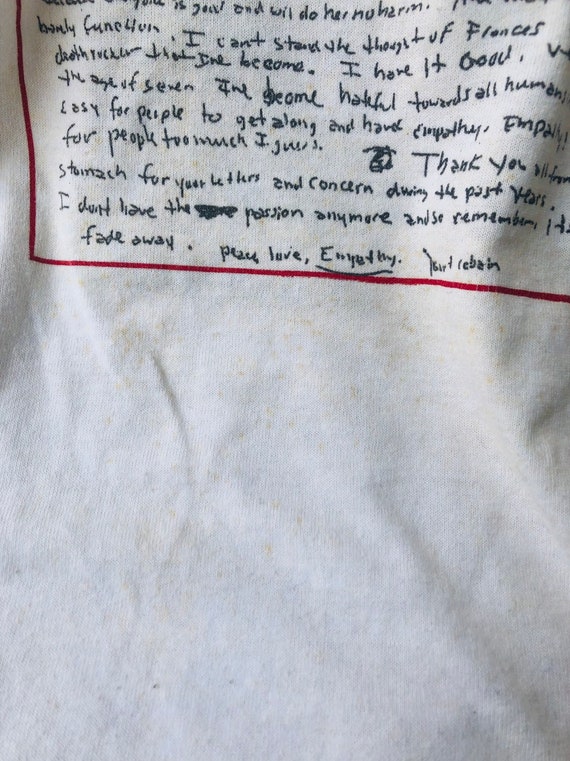 is good and will do her no harm.
barely function. I can't stand the thought of Frances
deathrocker that I've become. I have it Good,
the age of seven I've become hateful towards all humans
Easy for people to get along and have Empathy. Empathy
for people too much I guess. Thank you all from
stomach for your letters and concern during the past years.
I don't have the passion anymore and so remember, its
fade away. peace love, Empathy. Kurt Cobain